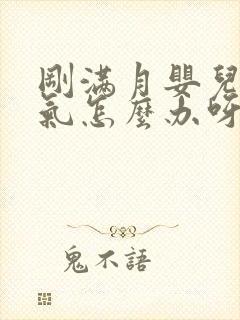 剛滿月嬰兒
氣怎麼办呀
鬼不語